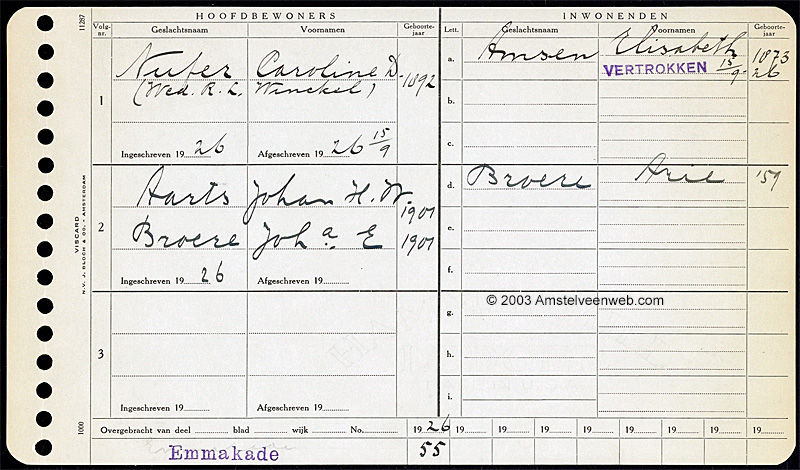 HOOFDBEWONERS
INWONENDEN
Volg-nr. Geslachtsnaam Voornamen Geboorte-jaar Lett. Geslachtsnaam Voornamen Geboorte-jaar
11287
1
Nufer Caroline D. 1892
(Wed. R. L. Winckel)
Ingeschreven 1926 Afgeschreven 1926 15/9
a. Amsen Elisabeth 1873
VERTROKKEN 15/9 26
b.
c.
2
Aarts Johan H. W. 1901
Broere Joh a. E 1901
Ingeschreven 1926 Afgeschreven 19
d. Broere Arie '51
e.
f.
VISCARD
N.V. J. BLOCH & CO. - AMSTERDAM
© 2003 Amstelveenweb.com
3
Ingeschreven 19 Afgeschreven 19
g.
h.
i.
1000
Overgebracht van deel blad wijk No. 1926 19 19 19 19 19 19 19 19
Emmakade 55